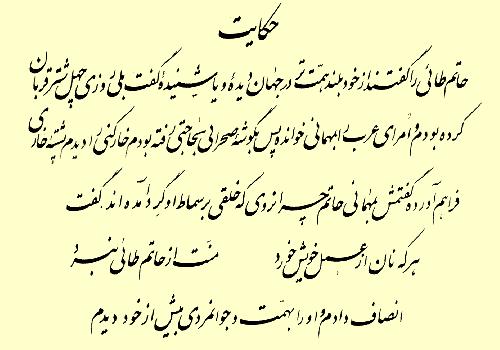 حکایت
حاتم طائی را گفتند از خود بلند همت‌تر در جهان دیدهٔ و یا شنیدهٔ گفت بلی روزی چهل شتر قربان
کرده بودم و امرای عرب را بمهمانی خوانده پس بگوشهٔ صحرائی بحاجتی رفته بودم خارکنی را دیدم پشتهٔ خاری
فراهم آورده گفتمش بمهمانی حاتم چرا نروی که خلقی بر سماط او گرد آمده‌اند. گفت
هر که نان از عمل خویش خورد منت از حاتم طائی نبرد
انصاف دادم و او را بهمت و جوانمردی بیش از خود دیدم